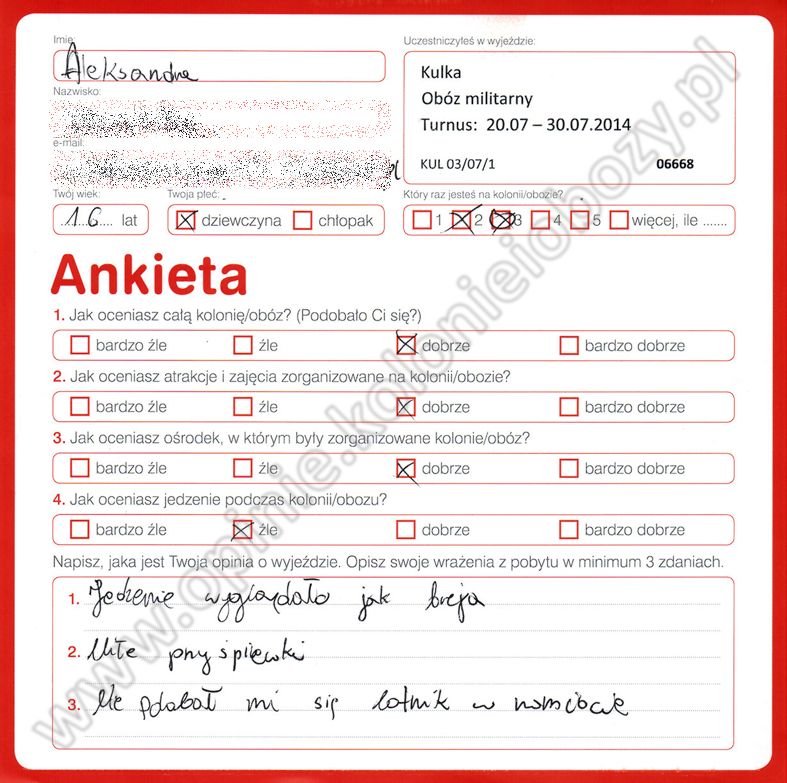 Imię:
Aleksandra
Uczestniczyłeś w wyjeździe:
Kulka
Obóz militarny
Turnus: 20.07 – 30.07.2014
KUL 03/07/1 06668
Nazwisko:
e-mail:
Twój wiek:
16 lat
Twoja płeć:
dziewczyna chłopak
Który raz jesteś na kolonii/obozie?
1 2 3 4 5 więcej, ile .......
Ankieta
1. Jak oceniasz całą kolonię/obóz? (Podobało Ci się?)
bardzo źle źle dobrze bardzo dobrze
2. Jak oceniasz atrakcje i zajęcia zorganizowane na kolonii/obozie?
bardzo źle źle dobrze bardzo dobrze
3. Jak oceniasz ośrodek, w którym były zorganizowane kolonie/obóz?
bardzo źle źle dobrze bardzo dobrze
4. Jak oceniasz jedzenie podczas kolonii/obozu?
bardzo źle źle dobrze bardzo dobrze
Napisz, jaka jest Twoja opinia o wyjeździe. Opisz swoje wrażenia z pobytu w minimum 3 zdaniach.
1. Jedzenie wyglądało jak breja
2. Miłe przyśpiewki
3. Nie podobał mi się lotnik w namiocie
www.opinie.kolonieiobozy.pl